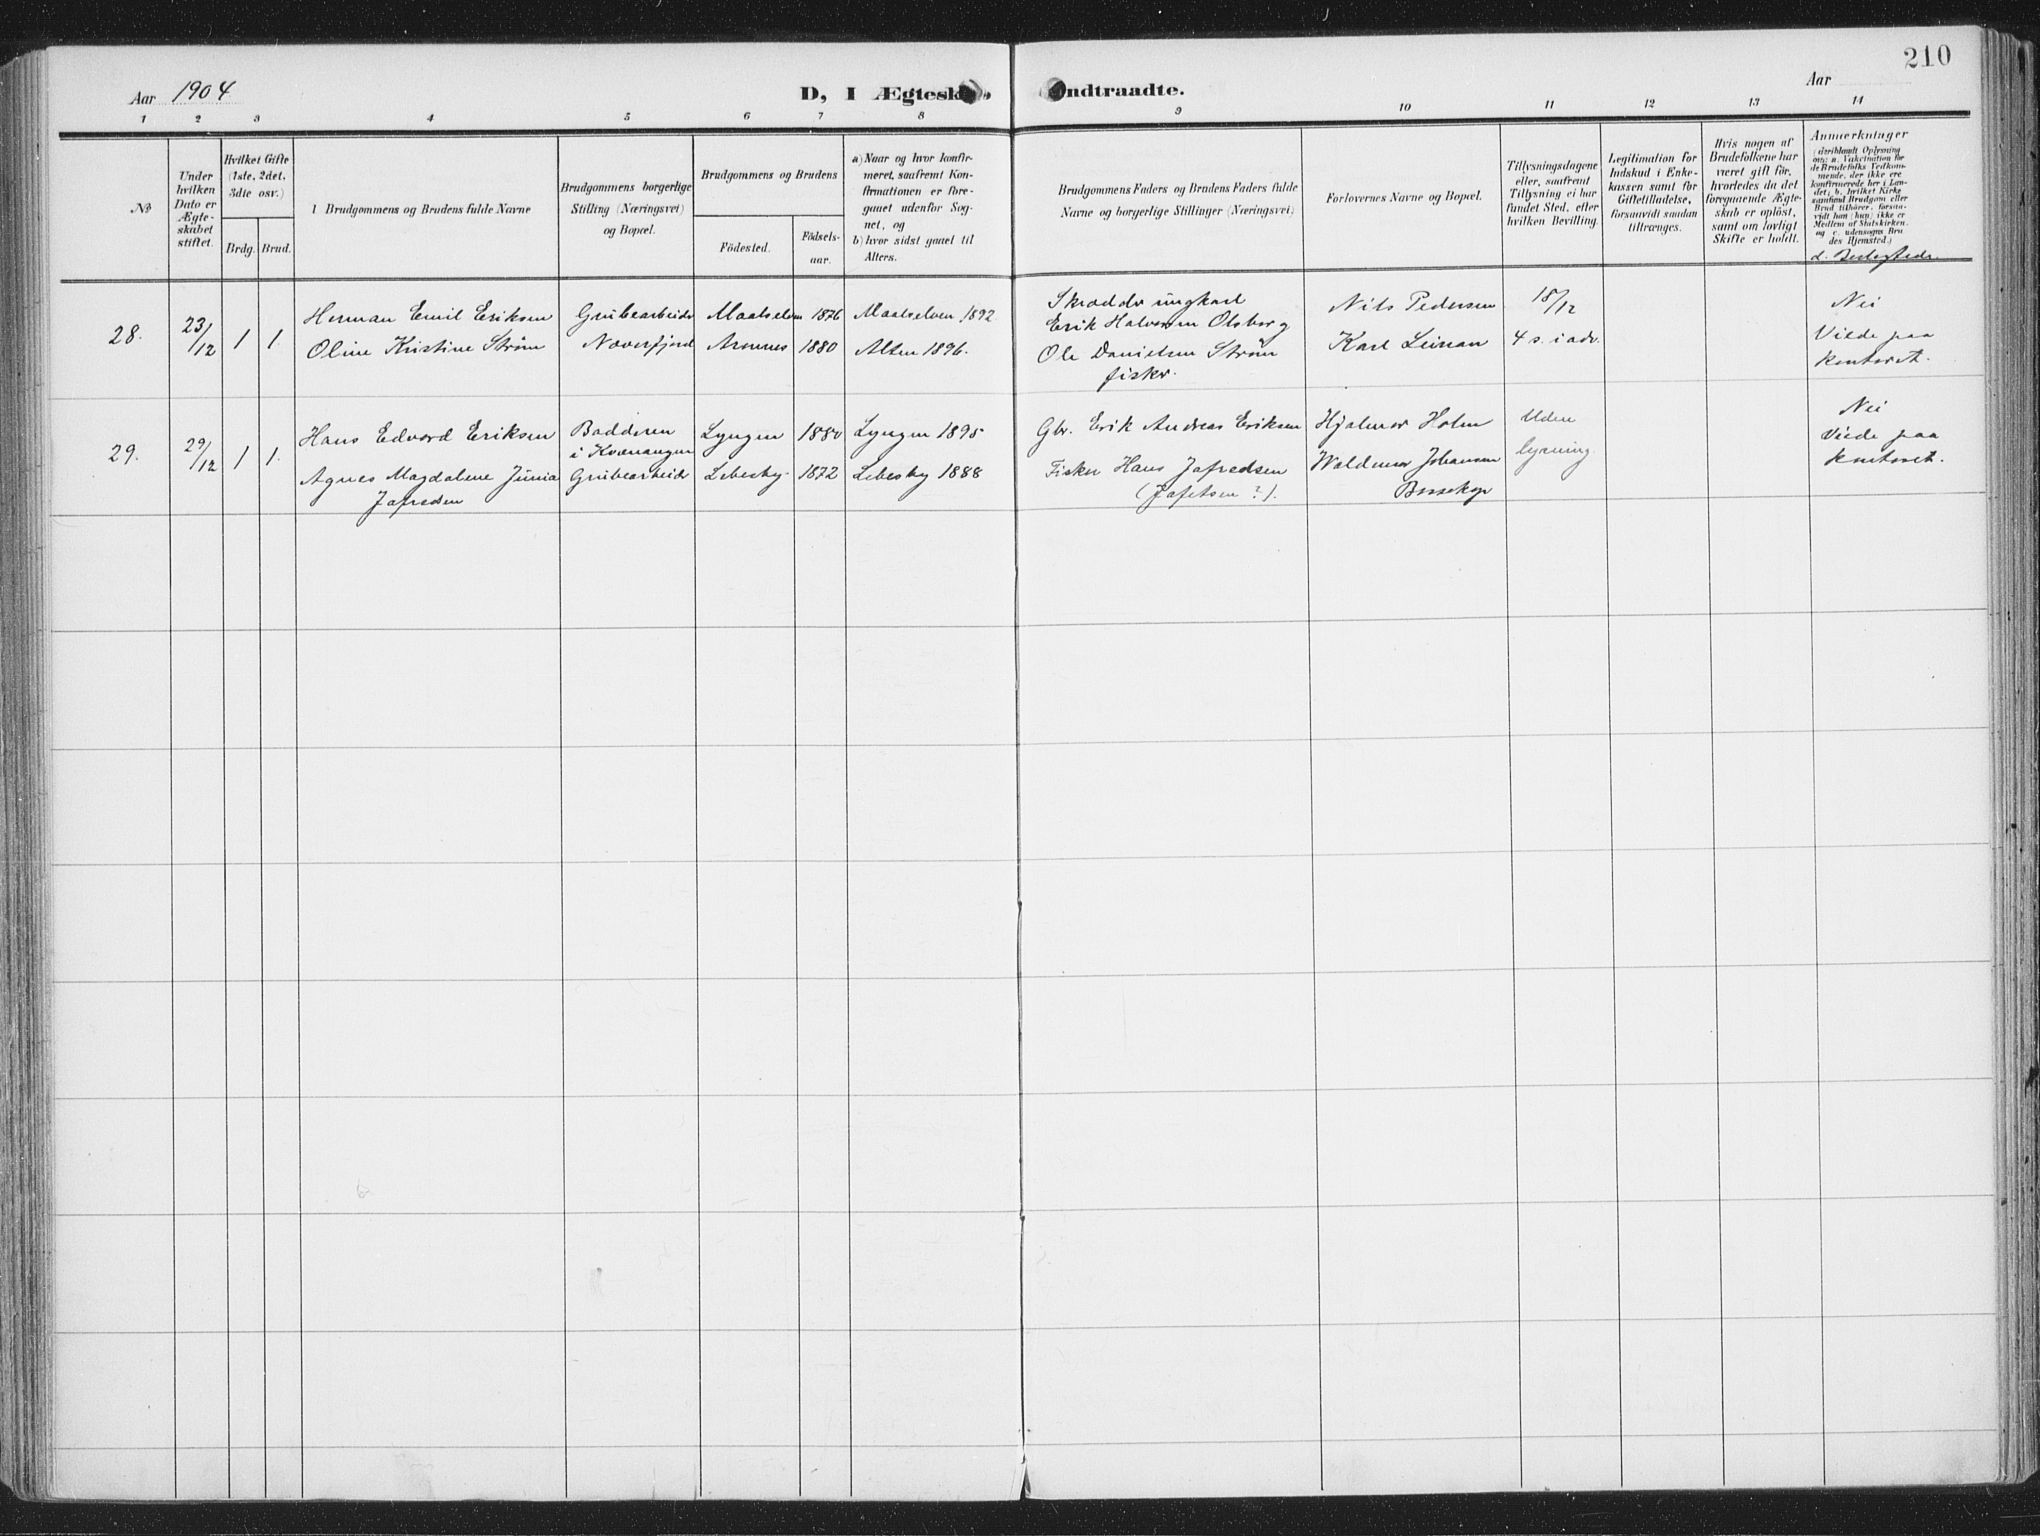 210
Aar 1904
D, I Ægtesk
Indtraadte.
Aar
1 2 3 4 5 6 7 8 9 10 11 12 13 14
№
Under hvilken Dato er Ægteskabet stiftet.
Hvilket Gifte (1ste, 2det, 3die osv.)
Brdg. Brud.
1 Brudgommens og Brudens fulde Navne
Brudgommens borgerlige Stilling (Næringsvei) og Bopæl.
Brudgommens og Brudens
Födested.
Födsels-aar.
a) Naar og hvor konfirmeret, saafremt Konfirmationen er foregaaet udenfor Sognet, og
b) hvor sidst gaaet til Alters.
Brudgommens Faders og Brudens Faders fulde Navne og borgerlige Stillinger (Næringsvei)
Forlovernes Navne og Bopæl.
Tillysningsdagene eller, saafremt Tillysning ei har fundet Sted, efter hvilken Bevilling.
Legitimation for Indskud i Enkekassen samt for Giftetilladelse, forsaavidt saadan tiltrænges.
Hvis nogen af Brudefolkene har været gift för, hvorledes da det foregaaende Ægteskab er oplöst, samt om lovligt Skifte er holdt.
Anmerkninger
(deriblandt Oplysning om: a. Vakcination for de Brudefolks Vedkommende, der ikke ere konfirmerede her i Landet; b. hvilket Kirkesamfund Brudgom eller Brud tilhörer, forsaavidt han (hun) ikke er Medlem af Statskirken, og c. udensogns Brudes Hjemsted.)
28. 23/12 1 1.
Herman Emil Eriksen
Oline Kristine Strøm
Grubearbeider
Næverfjord
Maalselven 1876
1880
Maalselven 1892
Alten 1896.
Skrædder ungkarl
Erik Halvorsen Olsborg
Ole Danielsen Strøm
fisker.
Nils Pedersen
Karl Leinan
18/12
4 s. i adv.
Nei
Viede paa
kontoret.
29. 29/12 1 1.
Hans Edvard Eriksen
Agnes Magdalene Junia
Jafredsen
Badderen
i Kvænangen
Grubearbeider
Lyngen 1880
Lebesby 1872
Lyngen 1895
Lebesby 1888
Gbr. Erik Andreas Eriksen
Fisker Hans Jafredsen
(Jafetsen ?).
Hjalmar Holm
Waldemar Johansen
Bossekop
Uden
lysning.
Nei
Viede paa
kontoret.